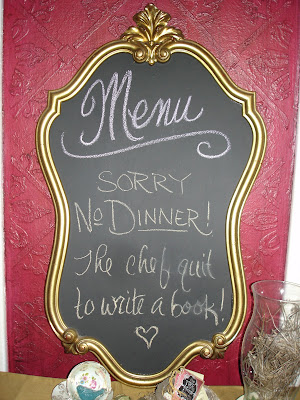 Menu
SORRY
No DINNER!
The chef quit
to write a book!